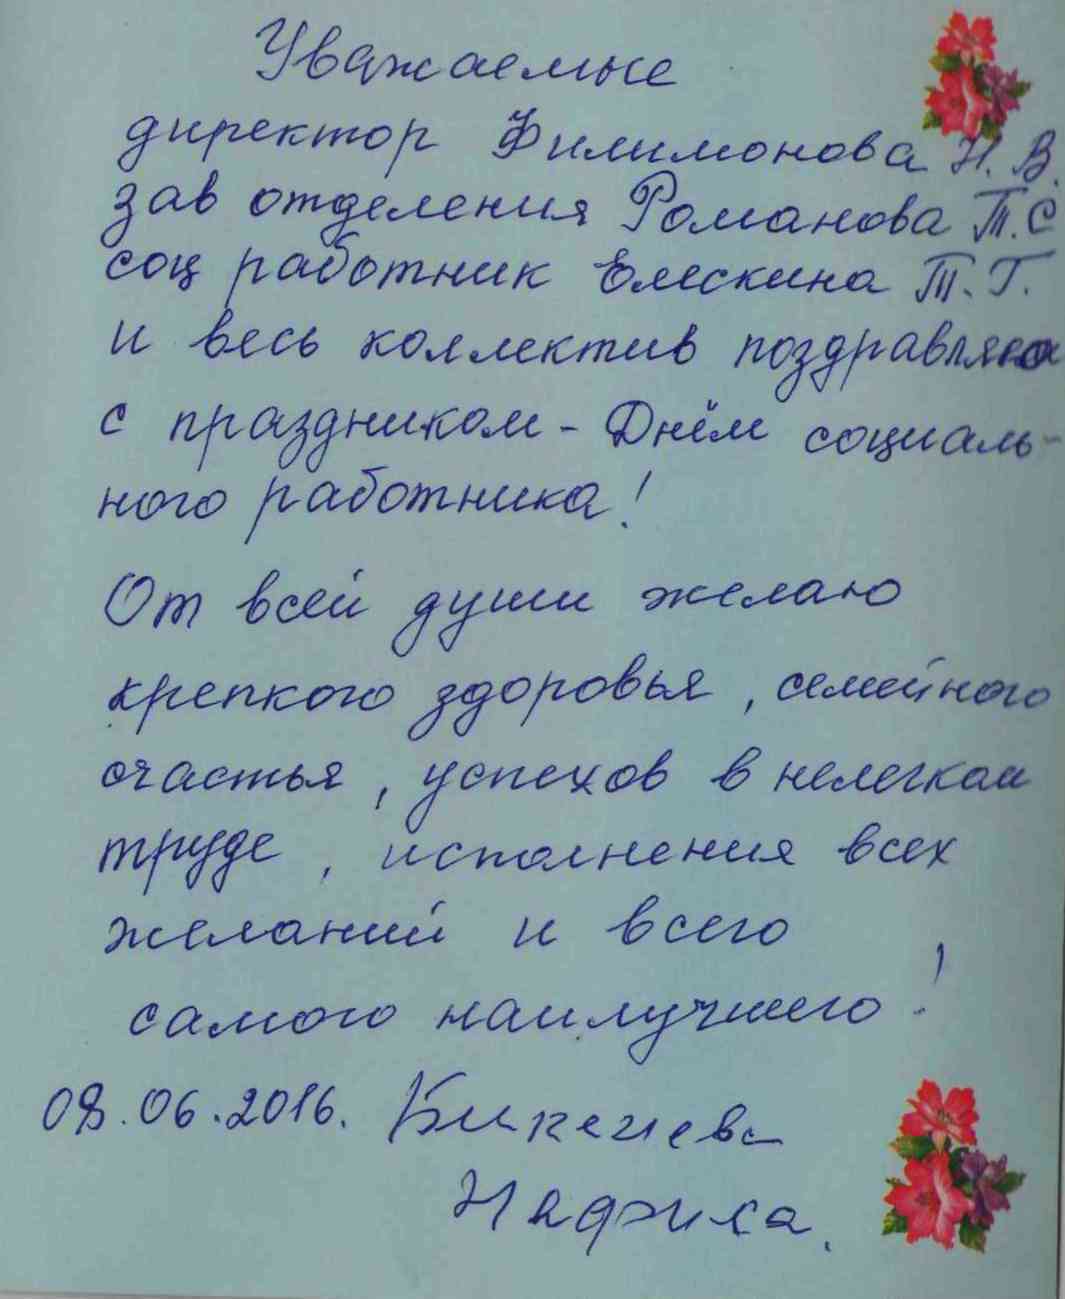 Уважаемые
директор Филимонова Н.В.
зав отделения Романова Т.С
соц работник Елескина Т.Г.
и весь коллектив поздравляю
с праздником - Днём социаль-
ного работника!
От всей души желаю
крепкого здоровья, семейного
счастья, успехов в нелегком
труде, исполнения всех
желаний и всего
самого наилучшего!
08.06.2016.